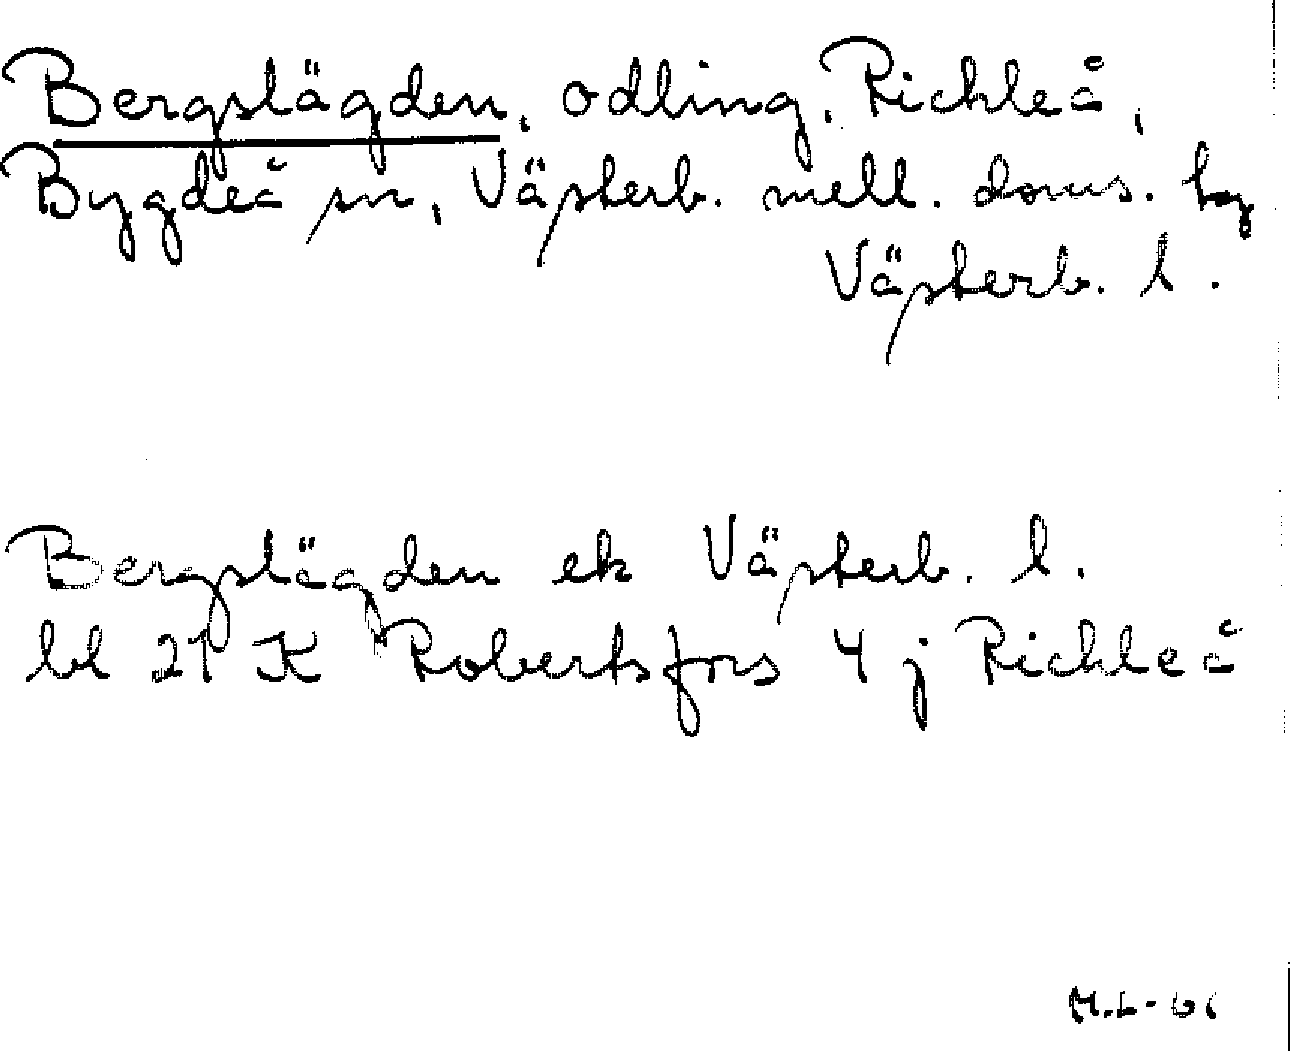 Bergslägden, odling, Rickleå,
Bygdeå sn, Västerb. mell. doms. tg
Västerb. l.
Bergslägden ek Västerb. l.
bl 21 K Robertsfors 4 j Rickleå
M.L-61